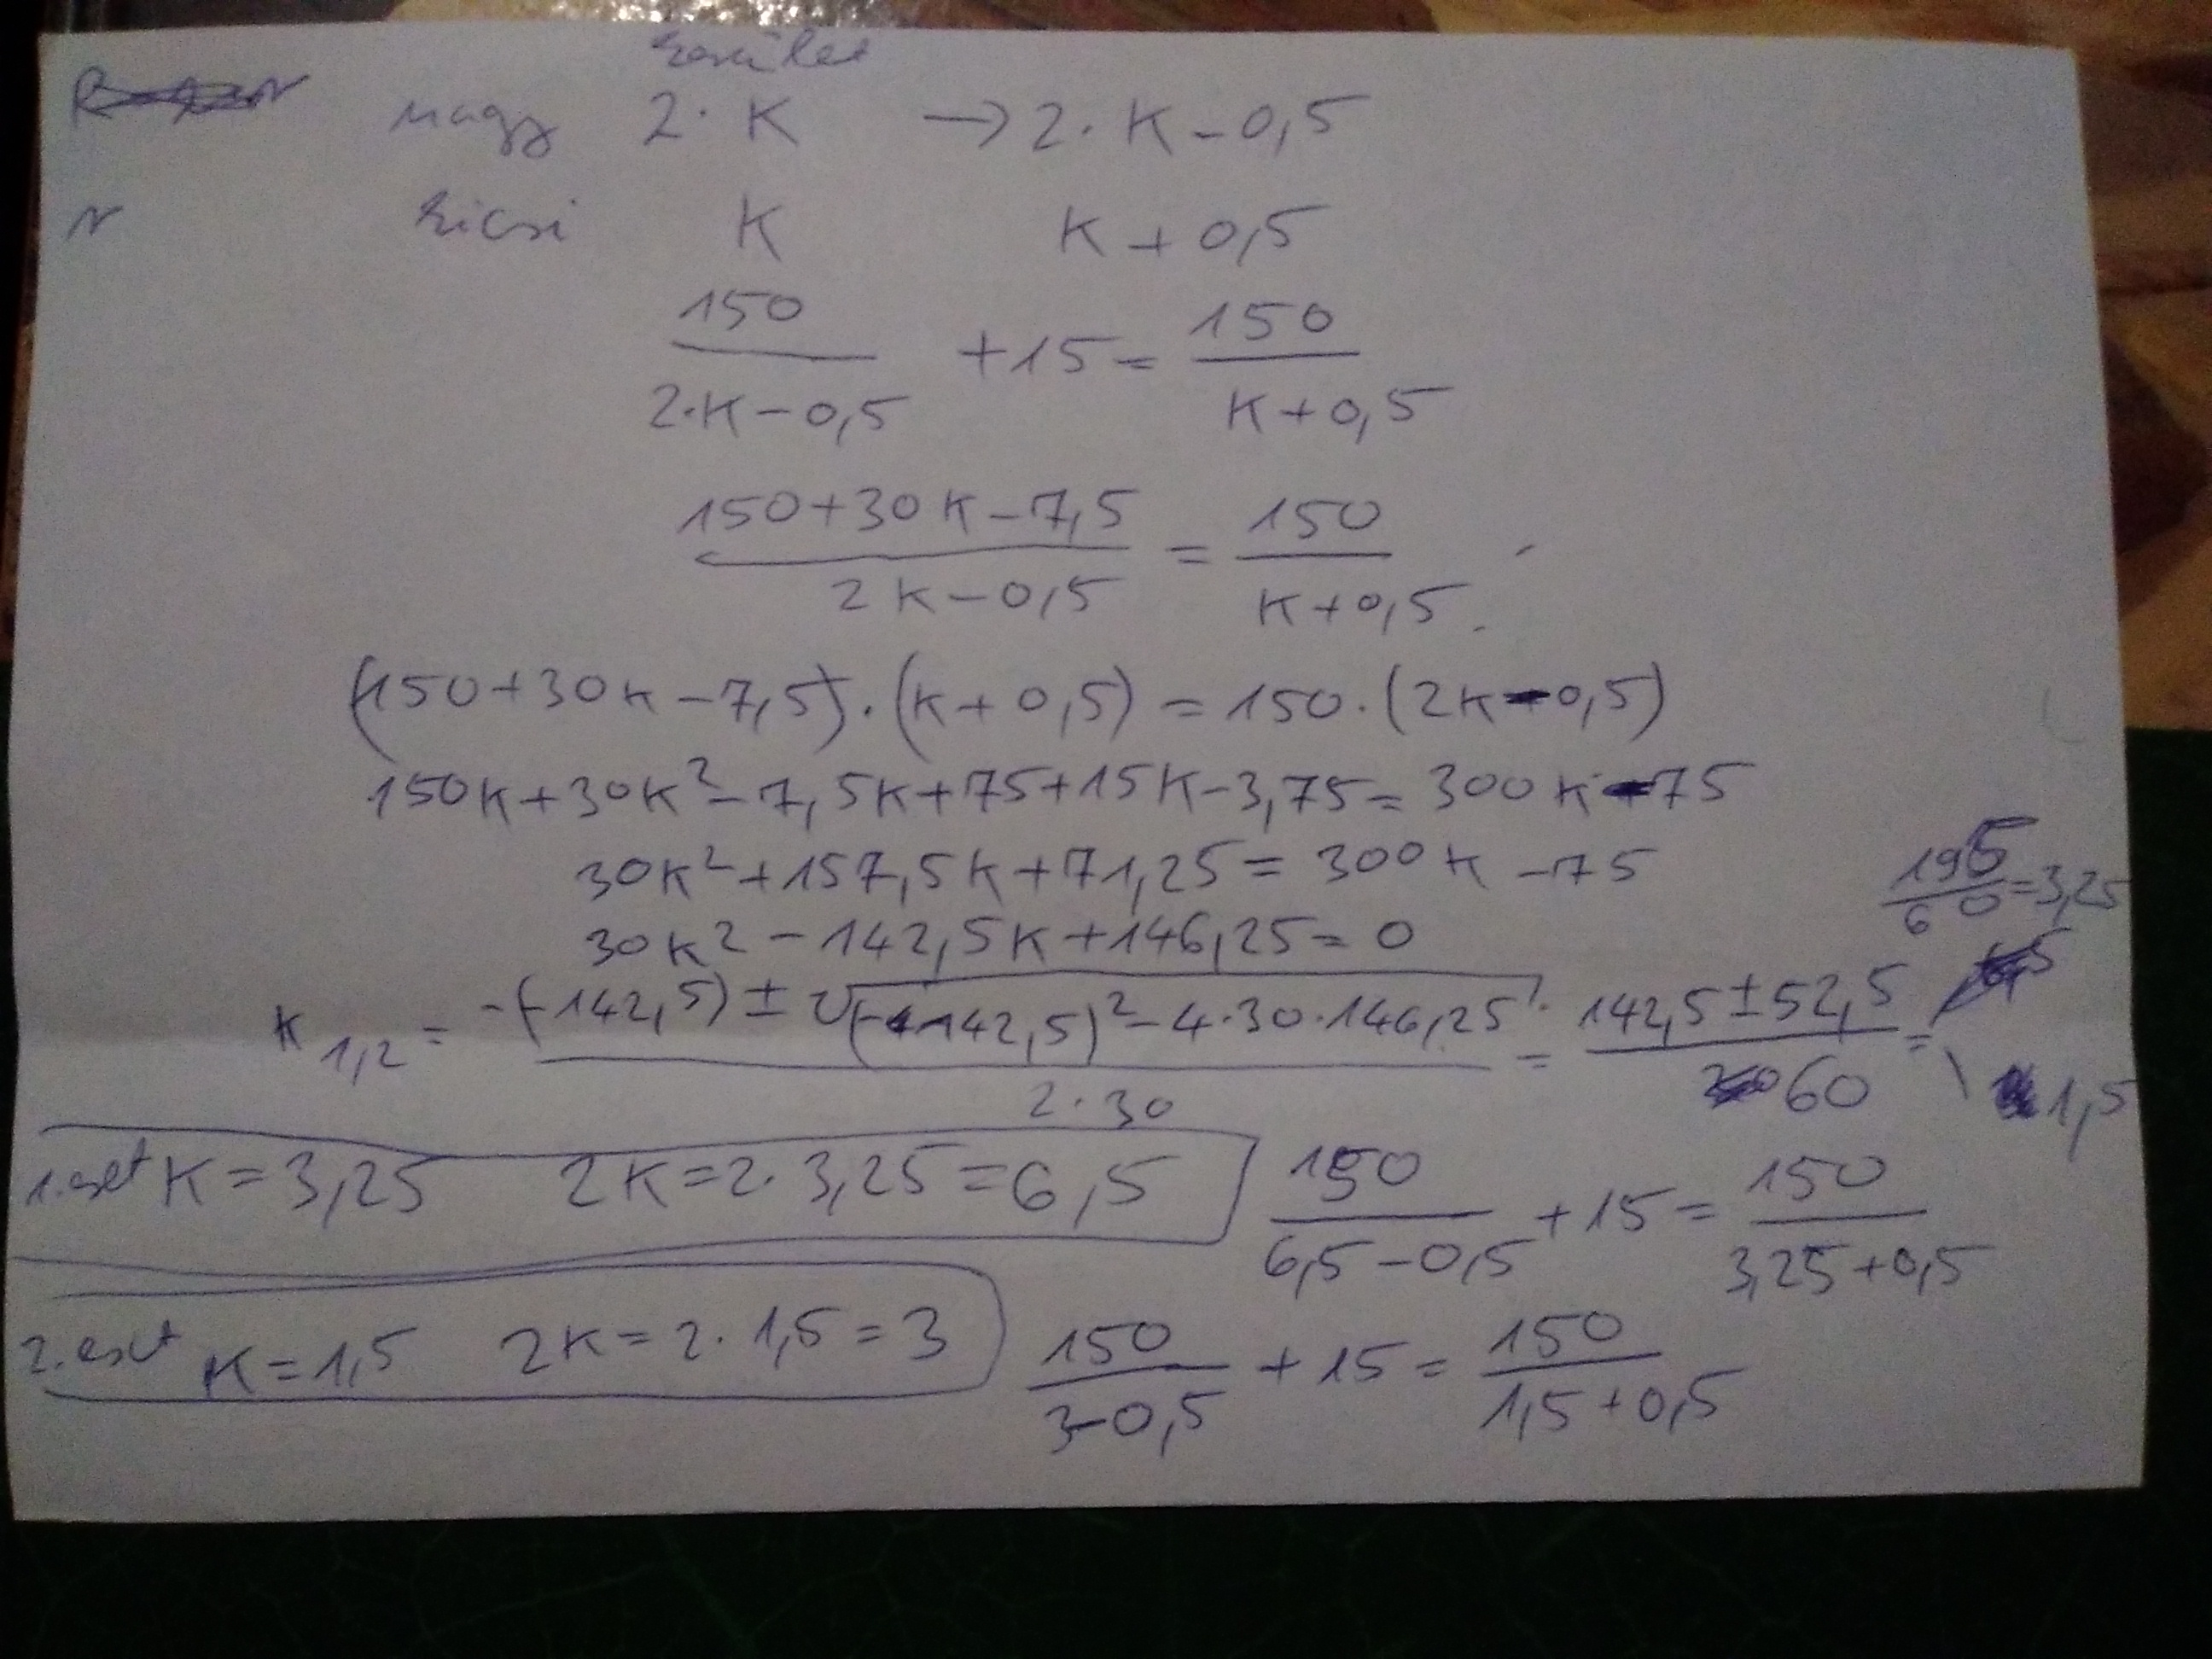 kerület
nagy 2·K → 2·K-0,5
kicsi K K+0,5
150/(2·K-0,5) +15 = 150/(K+0,5)
(150+30K-7,5)/(2K-0,5) = 150/(K+0,5)
(150+30K-7,5)·(K+0,5) = 150·(2K-0,5)
150K+30K²-7,5K+75+15K-3,75 = 300K-75
30K²+157,5K+71,25 = 300K-75
195/60 = 3,25
30K²-142,5K+146,25 = 0
K1,2 = (-(-142,5) ± √((-142,5)²-4·30·146,25))/(2·30) = (142,5±52,5)/60 = 1,5
1. eset K=3,25 2K=2·3,25=6,5 150/(6,5-0,5) +15 = 150/(3,25+0,5)
2. eset K=1,5 2K=2·1,5=3 150/(3-0,5) +15 = 150/(1,5+0,5)